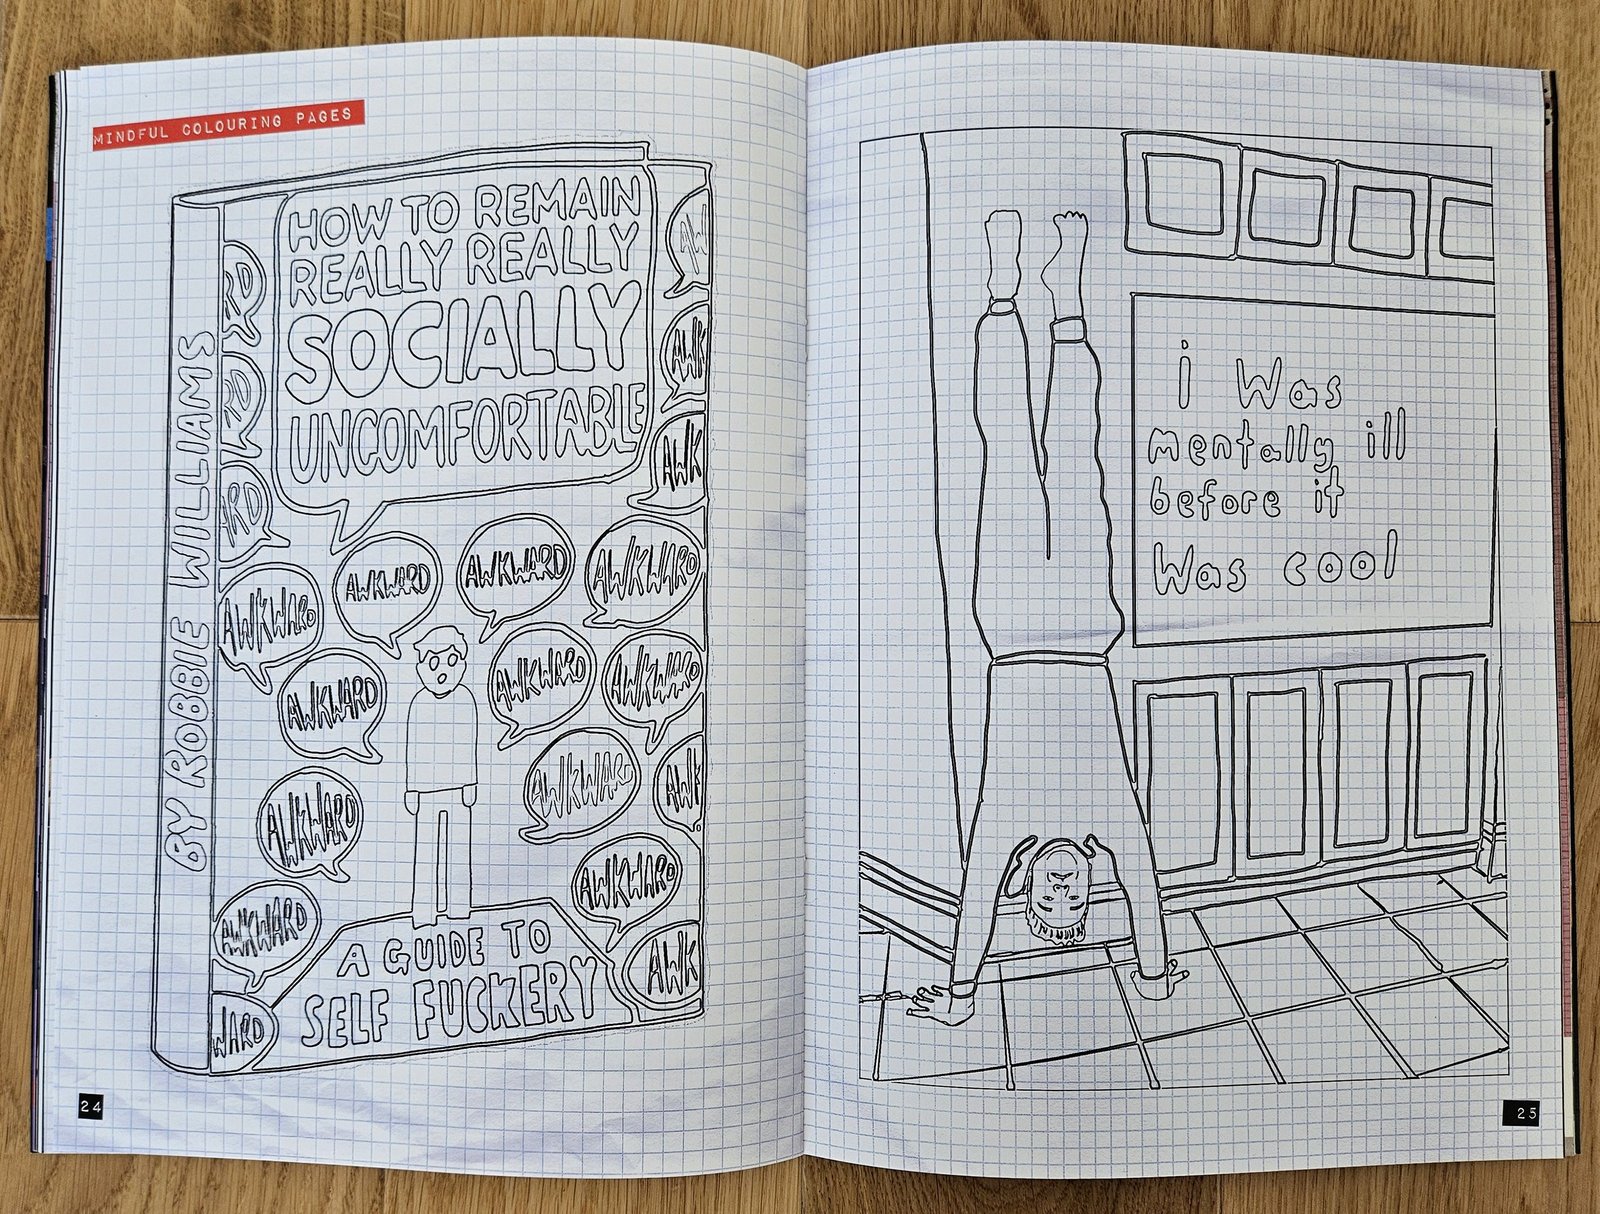 MINDFUL COLOURING PAGES
BY ROBBIE WILLIAMS
HOW TO REMAIN
REALLY REALLY
SOCIALLY
UNCOMFORTABLE
AW
RD
AWK
RD
AWK
ARD
AWKWARD
AWKWARD
AWKWARD
AWKWARD
AWKWARD
AWKWARD
AWKWARD
AWKWARD
AWKWARD
AWK
AWKWARD
AWKWARD
AWKWARD
AWK
WARD
A GUIDE TO
SELF FUCKERY
24
i Was
mentally ill
before it
Was cool
25